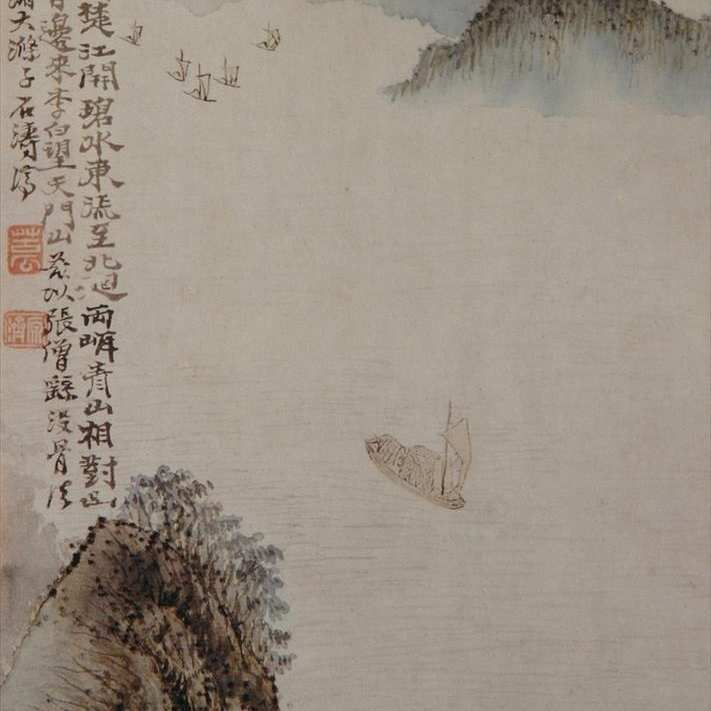 楚江開碧水東流至北迴兩岸青山相對出
日邊來李白望天門山茲以張僧繇沒骨法
大滌子石濤濟
苦瓜
原濟